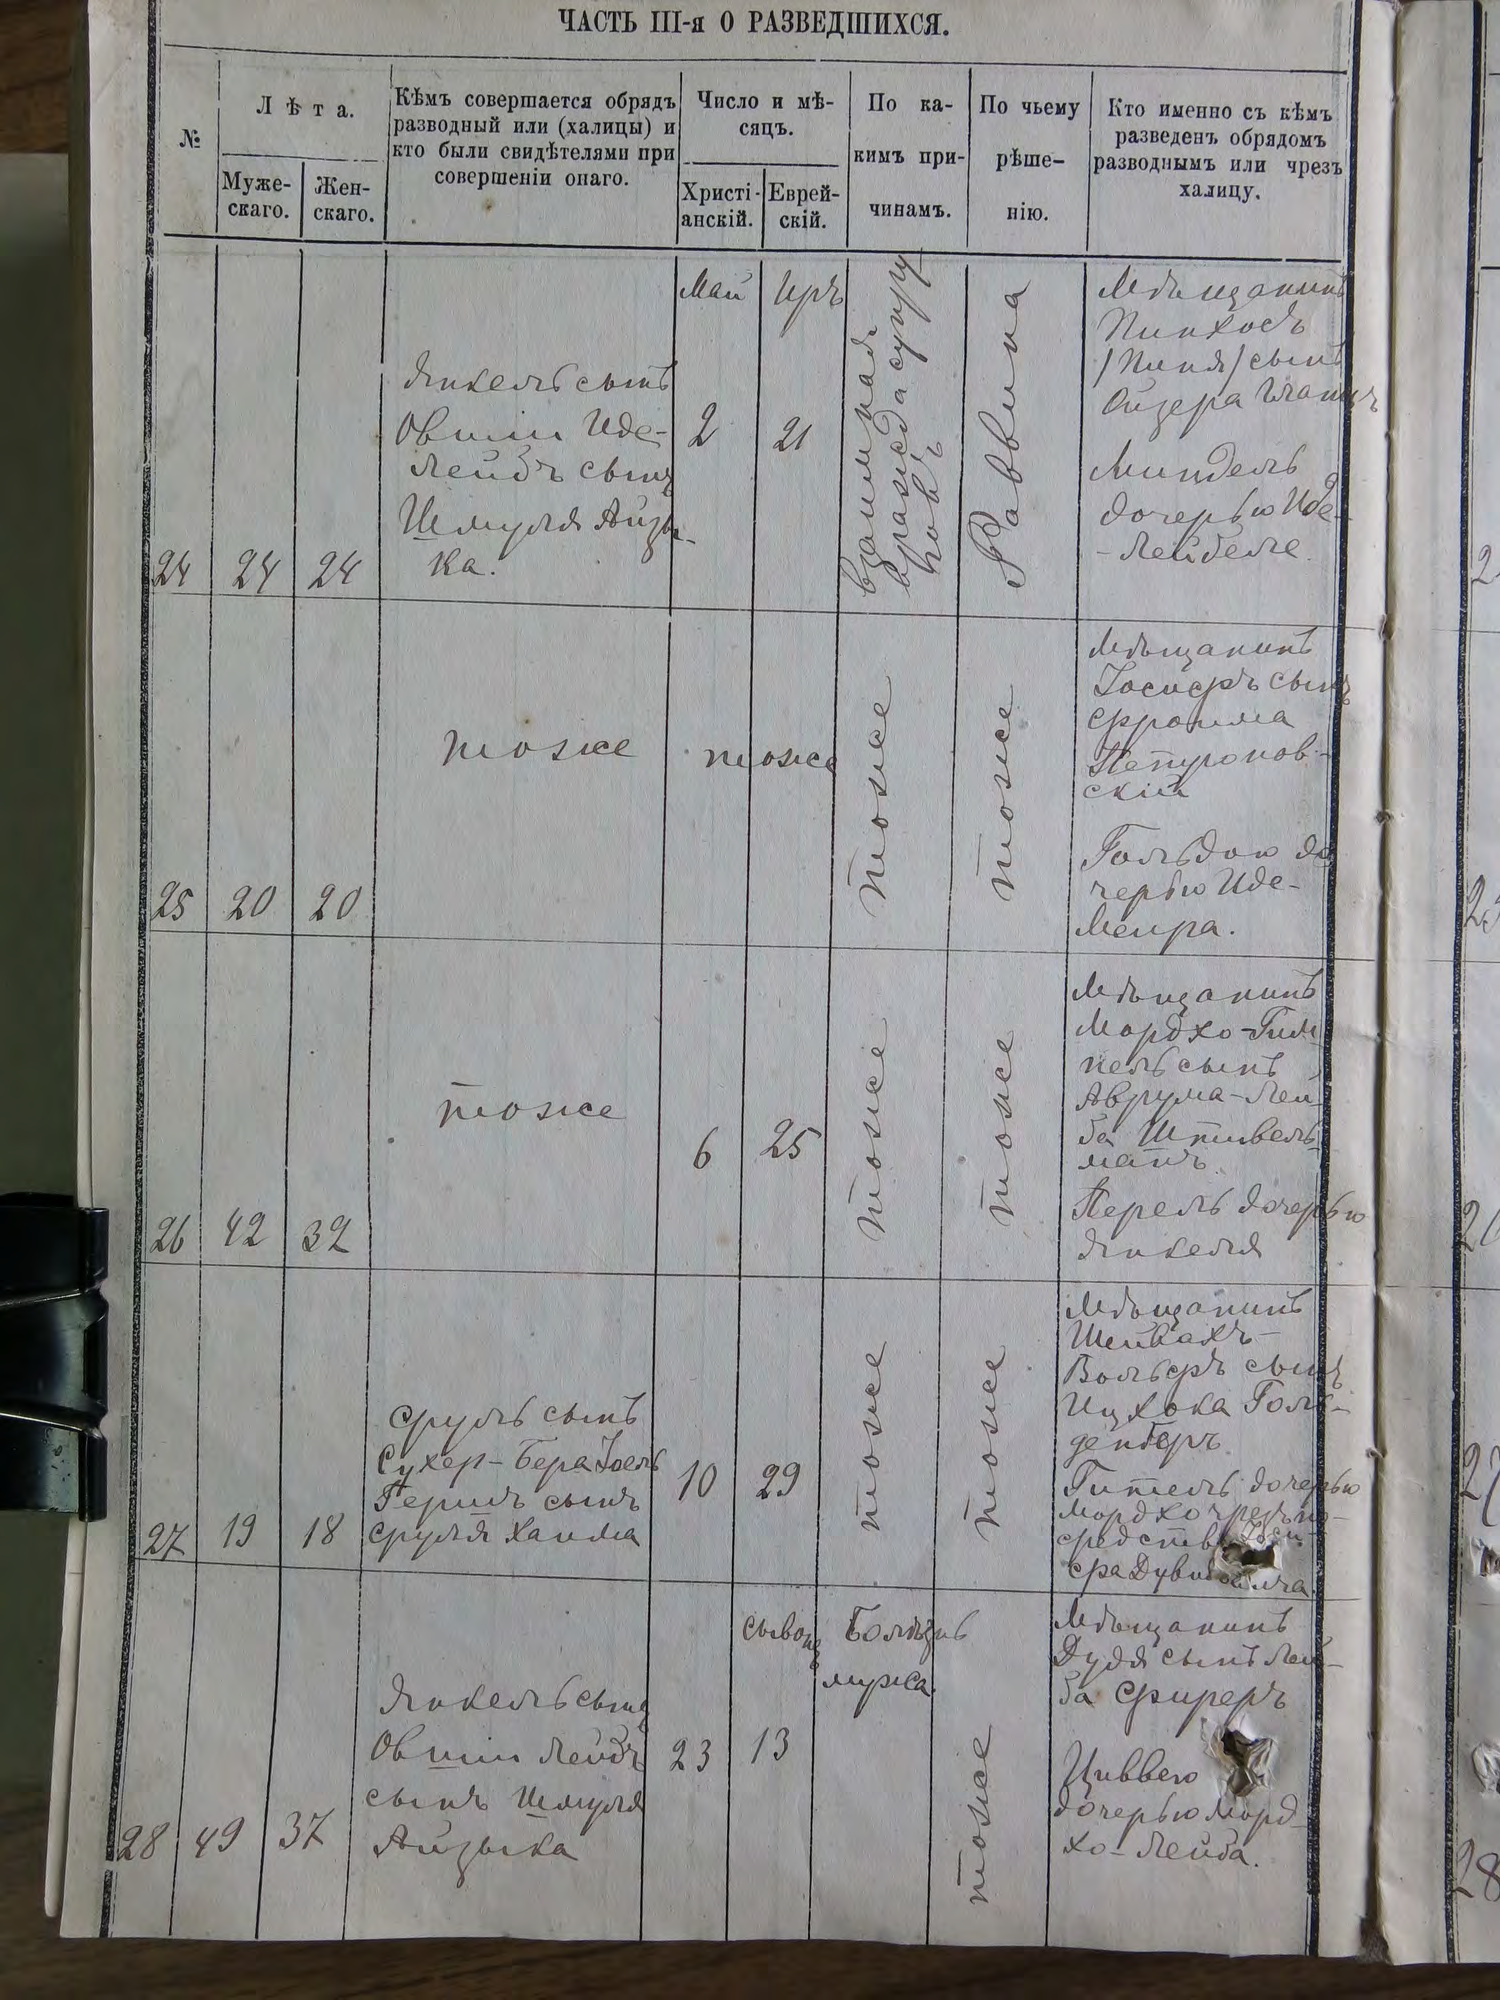 ЧАСТЬ III-я О РАЗВЕДШИХСЯ.
№
Лѣта.
Муже-
скаго.
Жен-
скаго.
Кѣмъ совершается обрядъ
разводный или (халицы) и
кто были свидѣтелями при
совершеніи онаго.
Число и мѣ-
сяцъ.
Христі-
анскій.
Еврей-
скій.
По ка-
кимъ при-
чинамъ.
По чьему
рѣше-
нію.
Кто именно съ кѣмъ
разведенъ обрядомъ
разводнымъ или чрезъ
халицу.
24
24
24
Янкель сынъ
Овшии Иде-
Лейбъ сынъ
Шмуля Айзы-
ка.
Май
2
Иръ
21
взаимная
вражда супру
говъ
Раввина
Мѣщанинъ
Пинхосъ
/Пиня/ сынъ
Ойзера
Миндель
дочерью Иде-
-Лейбеле.
25
20
20
тоже
тоже
тоже
тоже
Мѣщанинъ
Іосифъ сынъ
Фроима
Петронов-
скій
Гольдою до
черью Иде-
Меира.
26
42
32
тоже
6
25
тоже
тоже
Мѣщанинъ
Мордхо-Гим
пель сынъ
Аврума-Лей-
ба Штивель-
манъ.
Перель дочерью
Янкеля
27
19
18
Сруль сынъ
Сухер-Бера Іоель
Гершъ сынъ
Сруля Хаима
10
29
тоже
тоже
Мѣщанинъ
Шейвахъ-
Вольфъ сынъ
Ицхока Голь-
денбергъ
Гитель дочерью
Мордхо чрезъ по-
средств
28
49
37
Янкель сынъ
Овшии Лейбъ
сынъ Шмуля
Айзыка
23
сывонъ
13
Болѣзнь
мужа.
тоже
Мѣщанинъ
Дудя сынъ Лей-
ба Фиреръ
Циввею
дочерью Морд-
хо-Лейба.
2
25
2
27
28